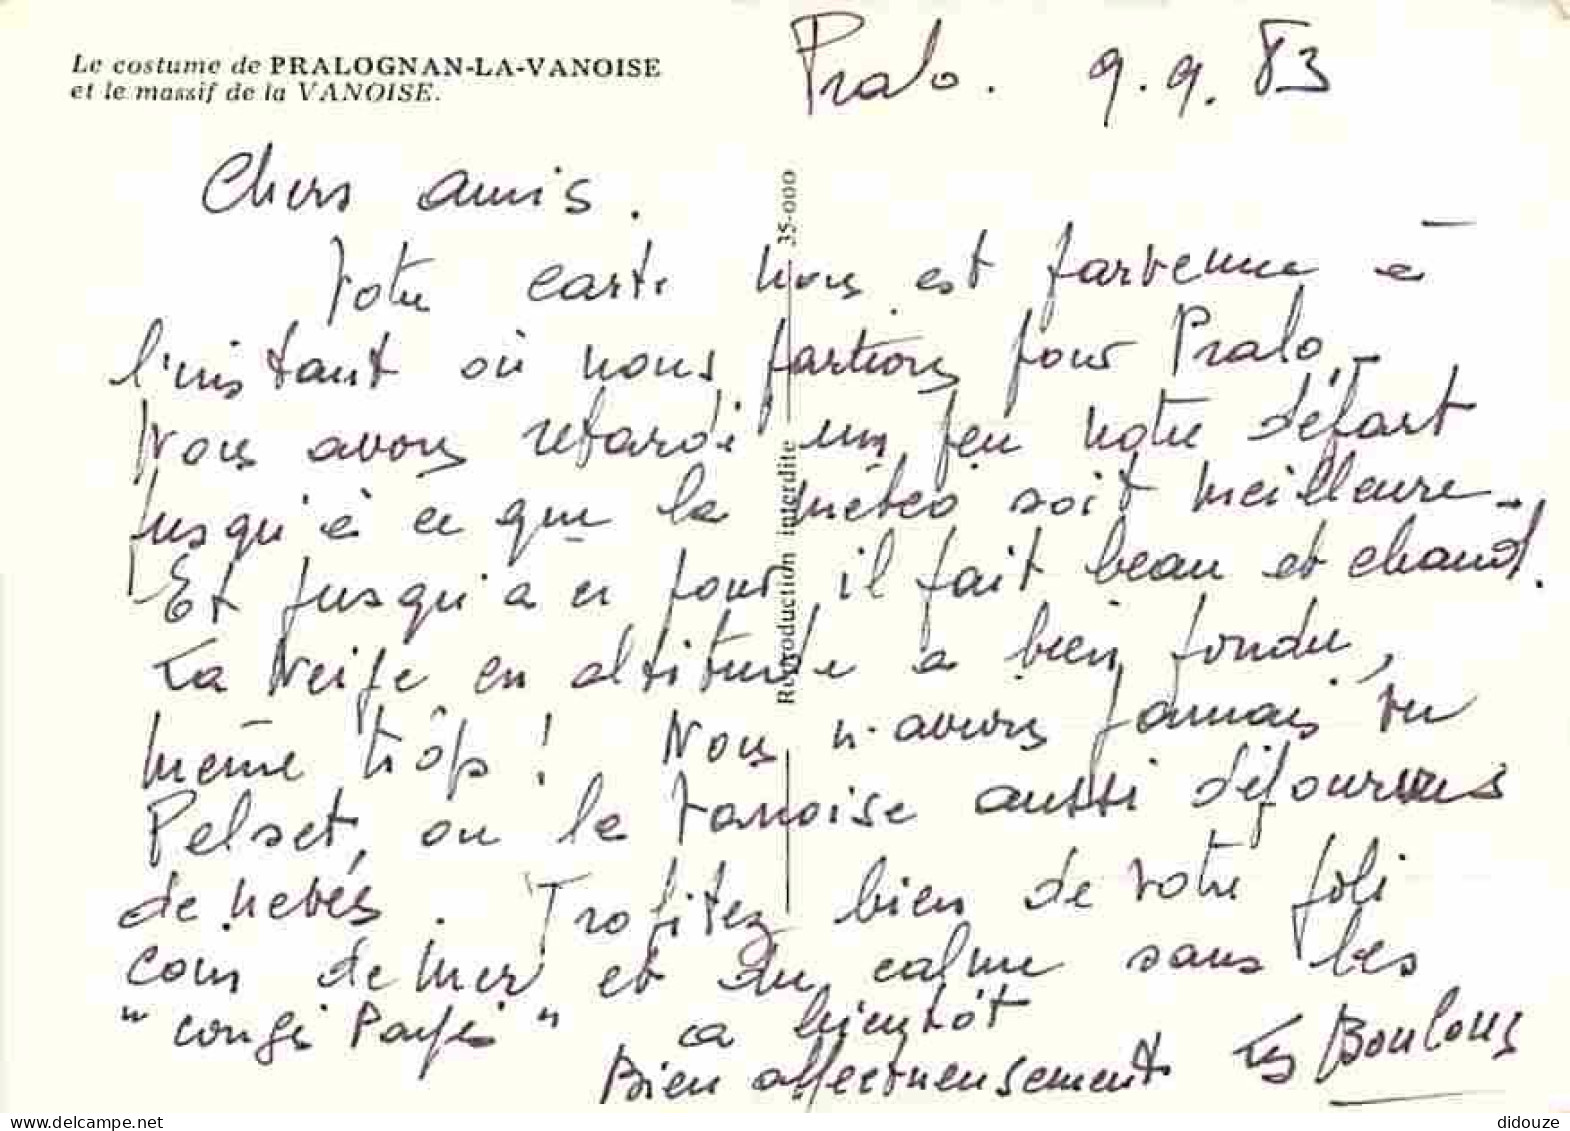 Le costume de PRALOGNAN-LA-VANOISE
et le massif de la VANOISE.
Pralo. 9.9.83
Chers amis.
Votre carte nous est parvenue à
l'instant où nous partions pour Pralo.
Nous avons retardé un peu notre départ
jusqu'à ce que la météo soit meilleure.
Et jusqu'à ce jour il fait beau et chaud.
La Neige en altitude a bien fondu,
même trôp ! Nous n'avions jamais vu
Pelset, ou la Vanoise aussi dépourvus
de nevés. Profitez bien de votre joli
coin de mer et du calme sans les
"congés Payés" a bientôt
Bien affectueusement Les Boulous
Reproduction interdite 35-000
didouze